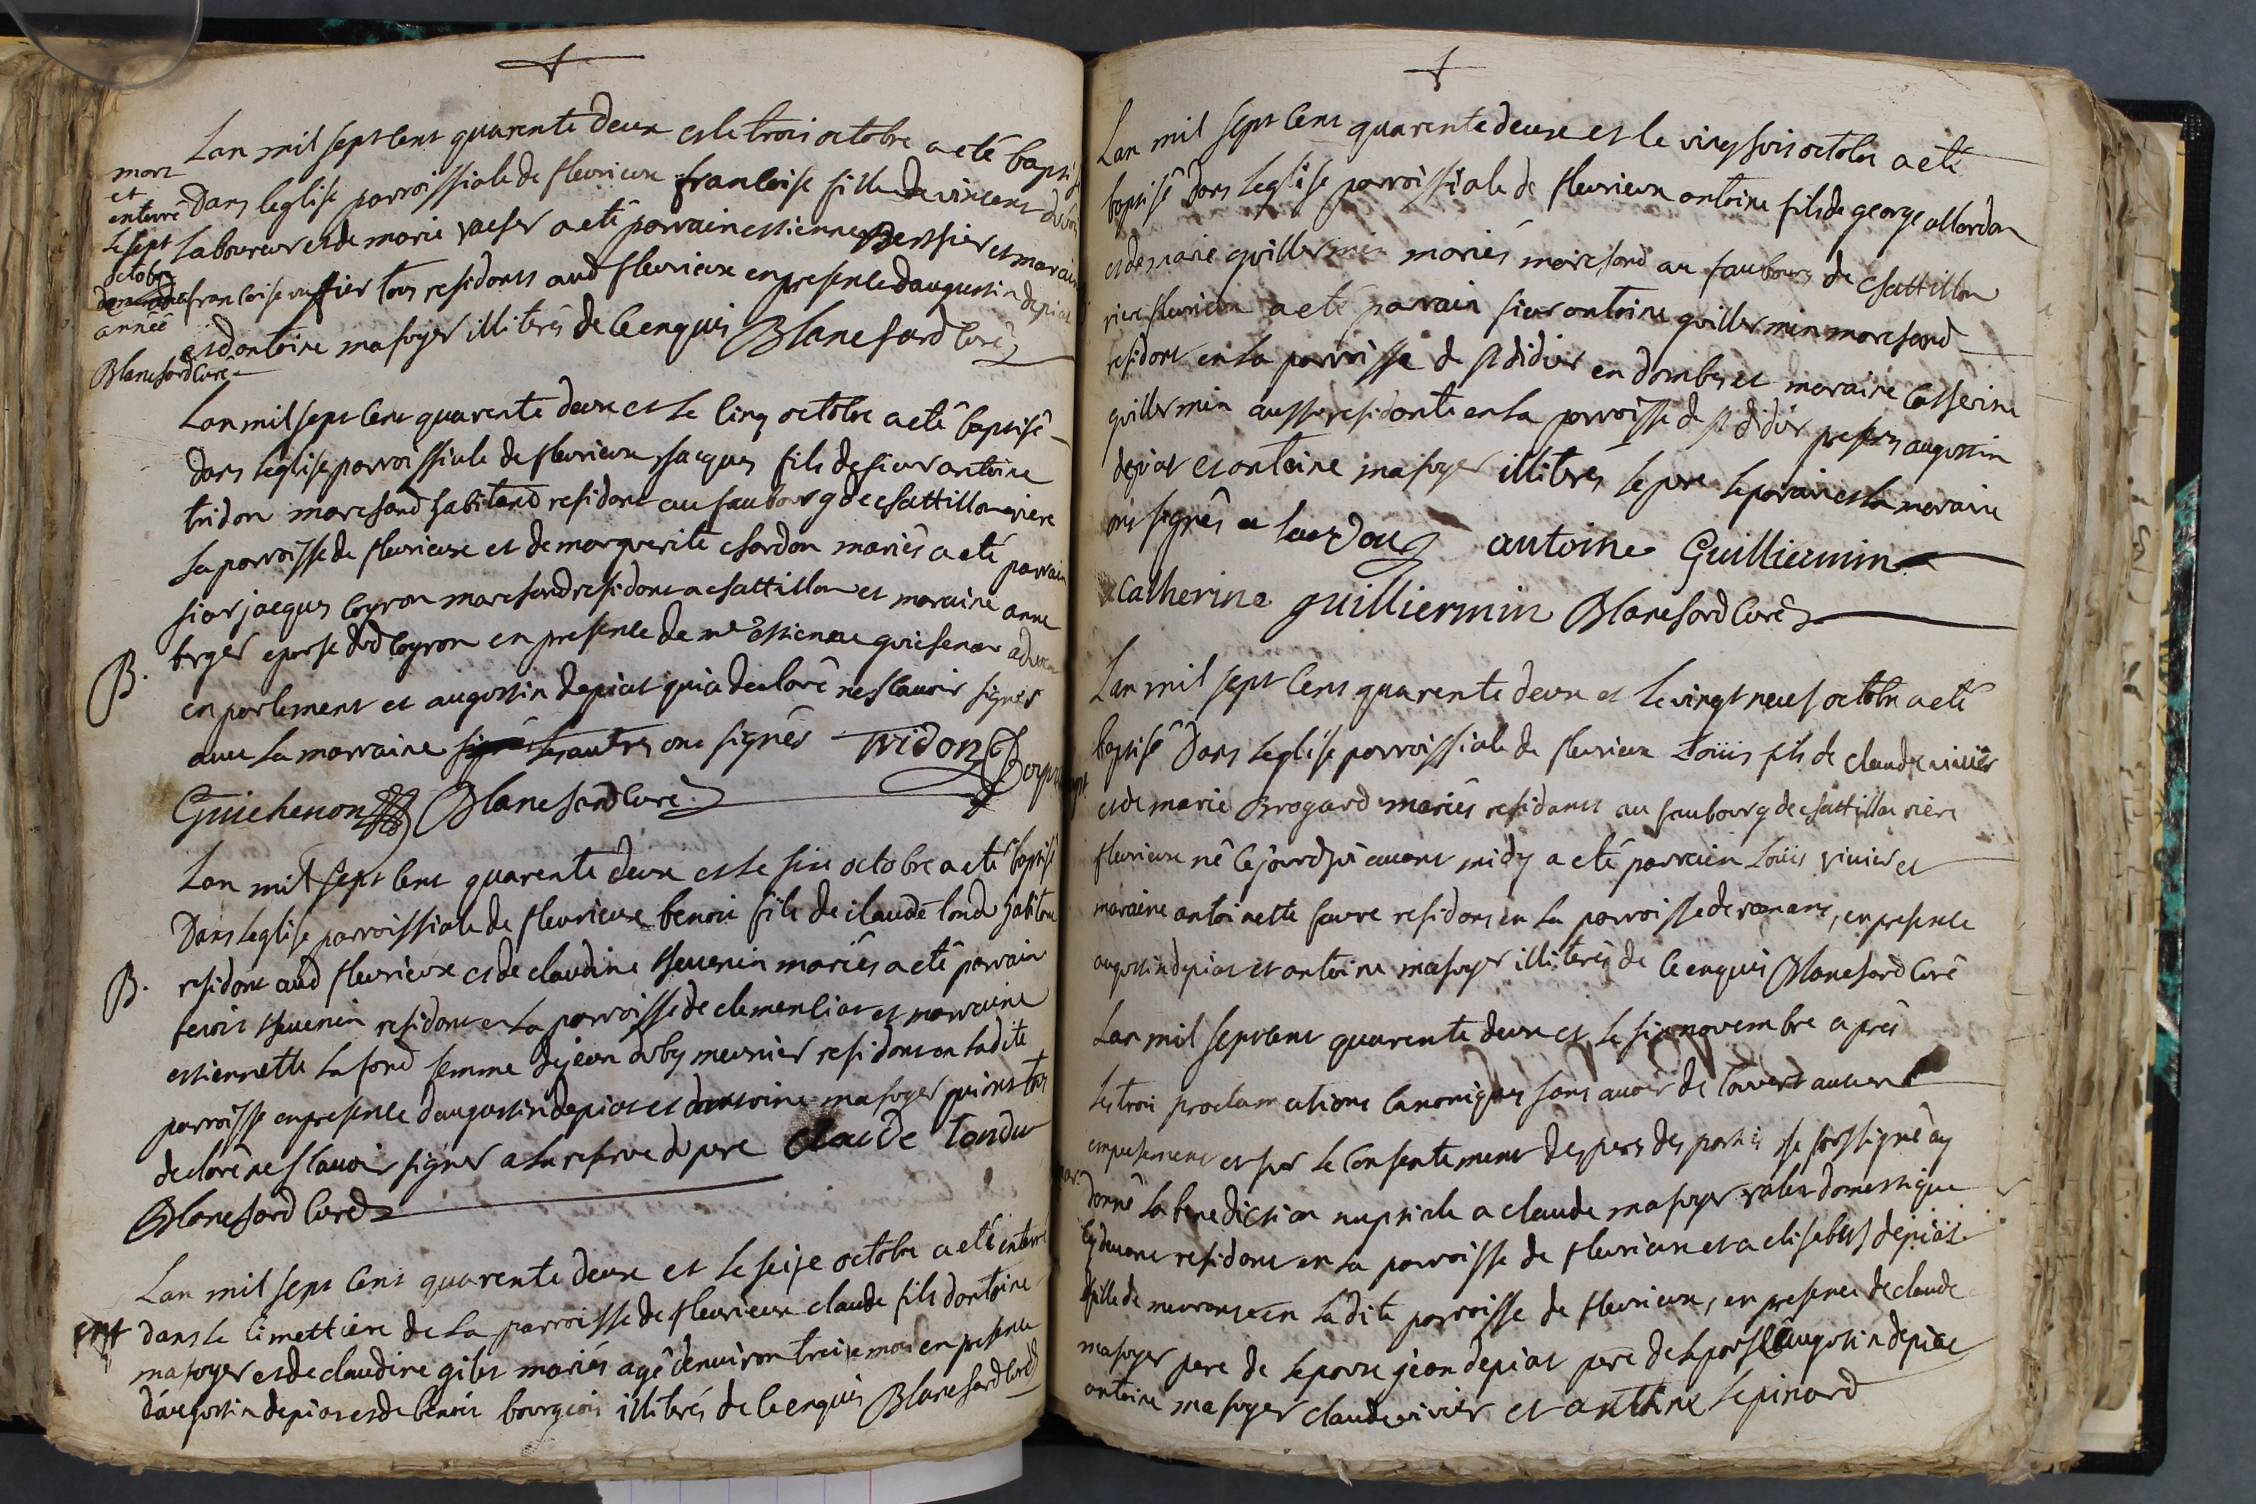 Lan mil sept cens quarente deux et le trois octobre a eté baptisé
mort
et
enterré
le sept
octobre
année
Blanchard curé
dans leglise parroissiale de fleurieux francoise fille de vincent
laboureur et de marie vacher a eté parrain estienne Berthier et maraine
francoise tous residents aud fleurieux en presence daugustin depiat
et dantoine mafoyer illiterés de ce enquis Blanchard curé
Lan mil sept cens quarente deux et le cinq octobre a eté baptisé
dans leglise parroissiale de fleurieux jacques fils de sieur antoine
tridon marchand habitant residant au faubourg de chattillon riere
la parroisse de fleurieux et de marguerite chardon mariés a eté parrain
sieur jacques coyron marchand residant a chattillon et maraine anne
B.
berger epouse dud coyron en presence de mr estienne guichenon advocat
en parlement et augustin depiat qui a declaré ne scavoir signer
avec la marraine les autres ont signés Tridon
Guichenon Blanchard curé
Lan mil sept cens quarente deux et le six octobre a eté baptisé
Dans leglise parroissiale de fleurieux benoit fils de claude tondu habitant
B.
residant aud fleurieux et de claudine thevenin mariés a eté parrain
benoit thevenin residant en la parroisse de clemenciat et marraine
estiennette lafond femme de jean meunier residant en ladite
parroisse en presence daugustin depiat et dantoine mafoyer qui ont tous
declaré ne scavoir signer a la reserve du pere claude tondu
Blanchard curé
Lan mil sept cens quarente deux et le seise octobre a eté enterré
dans le cimettiere de la parroisse de fleurieux claude fils dantoine
mafoyer et de claudine gilet mariés agé denviron treize mois en presence
daugustin depiat et de benoit bourgeois illiterés de ce enquis Blanchard curé
Lan mil sept cens quarente deux et le vingt octobre a eté
baptisé dans leglise parroissiale de fleurieux antoine fils de george
et de marie guillermin mariés marchand au faubourg de chattillon
riere fleurieux a eté parrain sieur antoine guillermin marchand
residant en la parroisse de st didier en dombes et maraine catherine
guillermin aussi residante en la parroisse de st didier presens augustin
depiat et antoine mafoyer illiterés le pere le parain et la maraine
ont signés antoine Guilliermin
catherine guilliermin Blanchard curé
Lan mil sept cens quarente deux et le vingt neuf octobre a eté
baptisé dans leglise parroissiale de fleurieux Loüis fils de claude vivier
et de marie Brogard mariés residants au faubourg de chattillon riere
fleurieux né ce jourdhui avant midy a eté parrain Loüis vivier et
maraine antoinette favre residans en la parroisse de romans, en presence
augustin depiat et antoine mafoyer illiterés de ce enquis Blanchard curé
Lan mil sept cens quarente deux et le six novembre après
les trois proclamations canoniques sans avoir decouvert aucun
empechement et sur le consentement des peres des parties je soussigné ay
donné la benediction nuptiale a claude mafoyer valet domestique
cy devant residant en la parroisse de fleurieux et a elisabeth depiat
fille de meurante en ladite parroisse de fleurieux, en presence de claude
mafoyer pere de lepoux jean depiat pere de lepouse augustin depiat
antoine mafoyer claude vivier et antoine lepinard